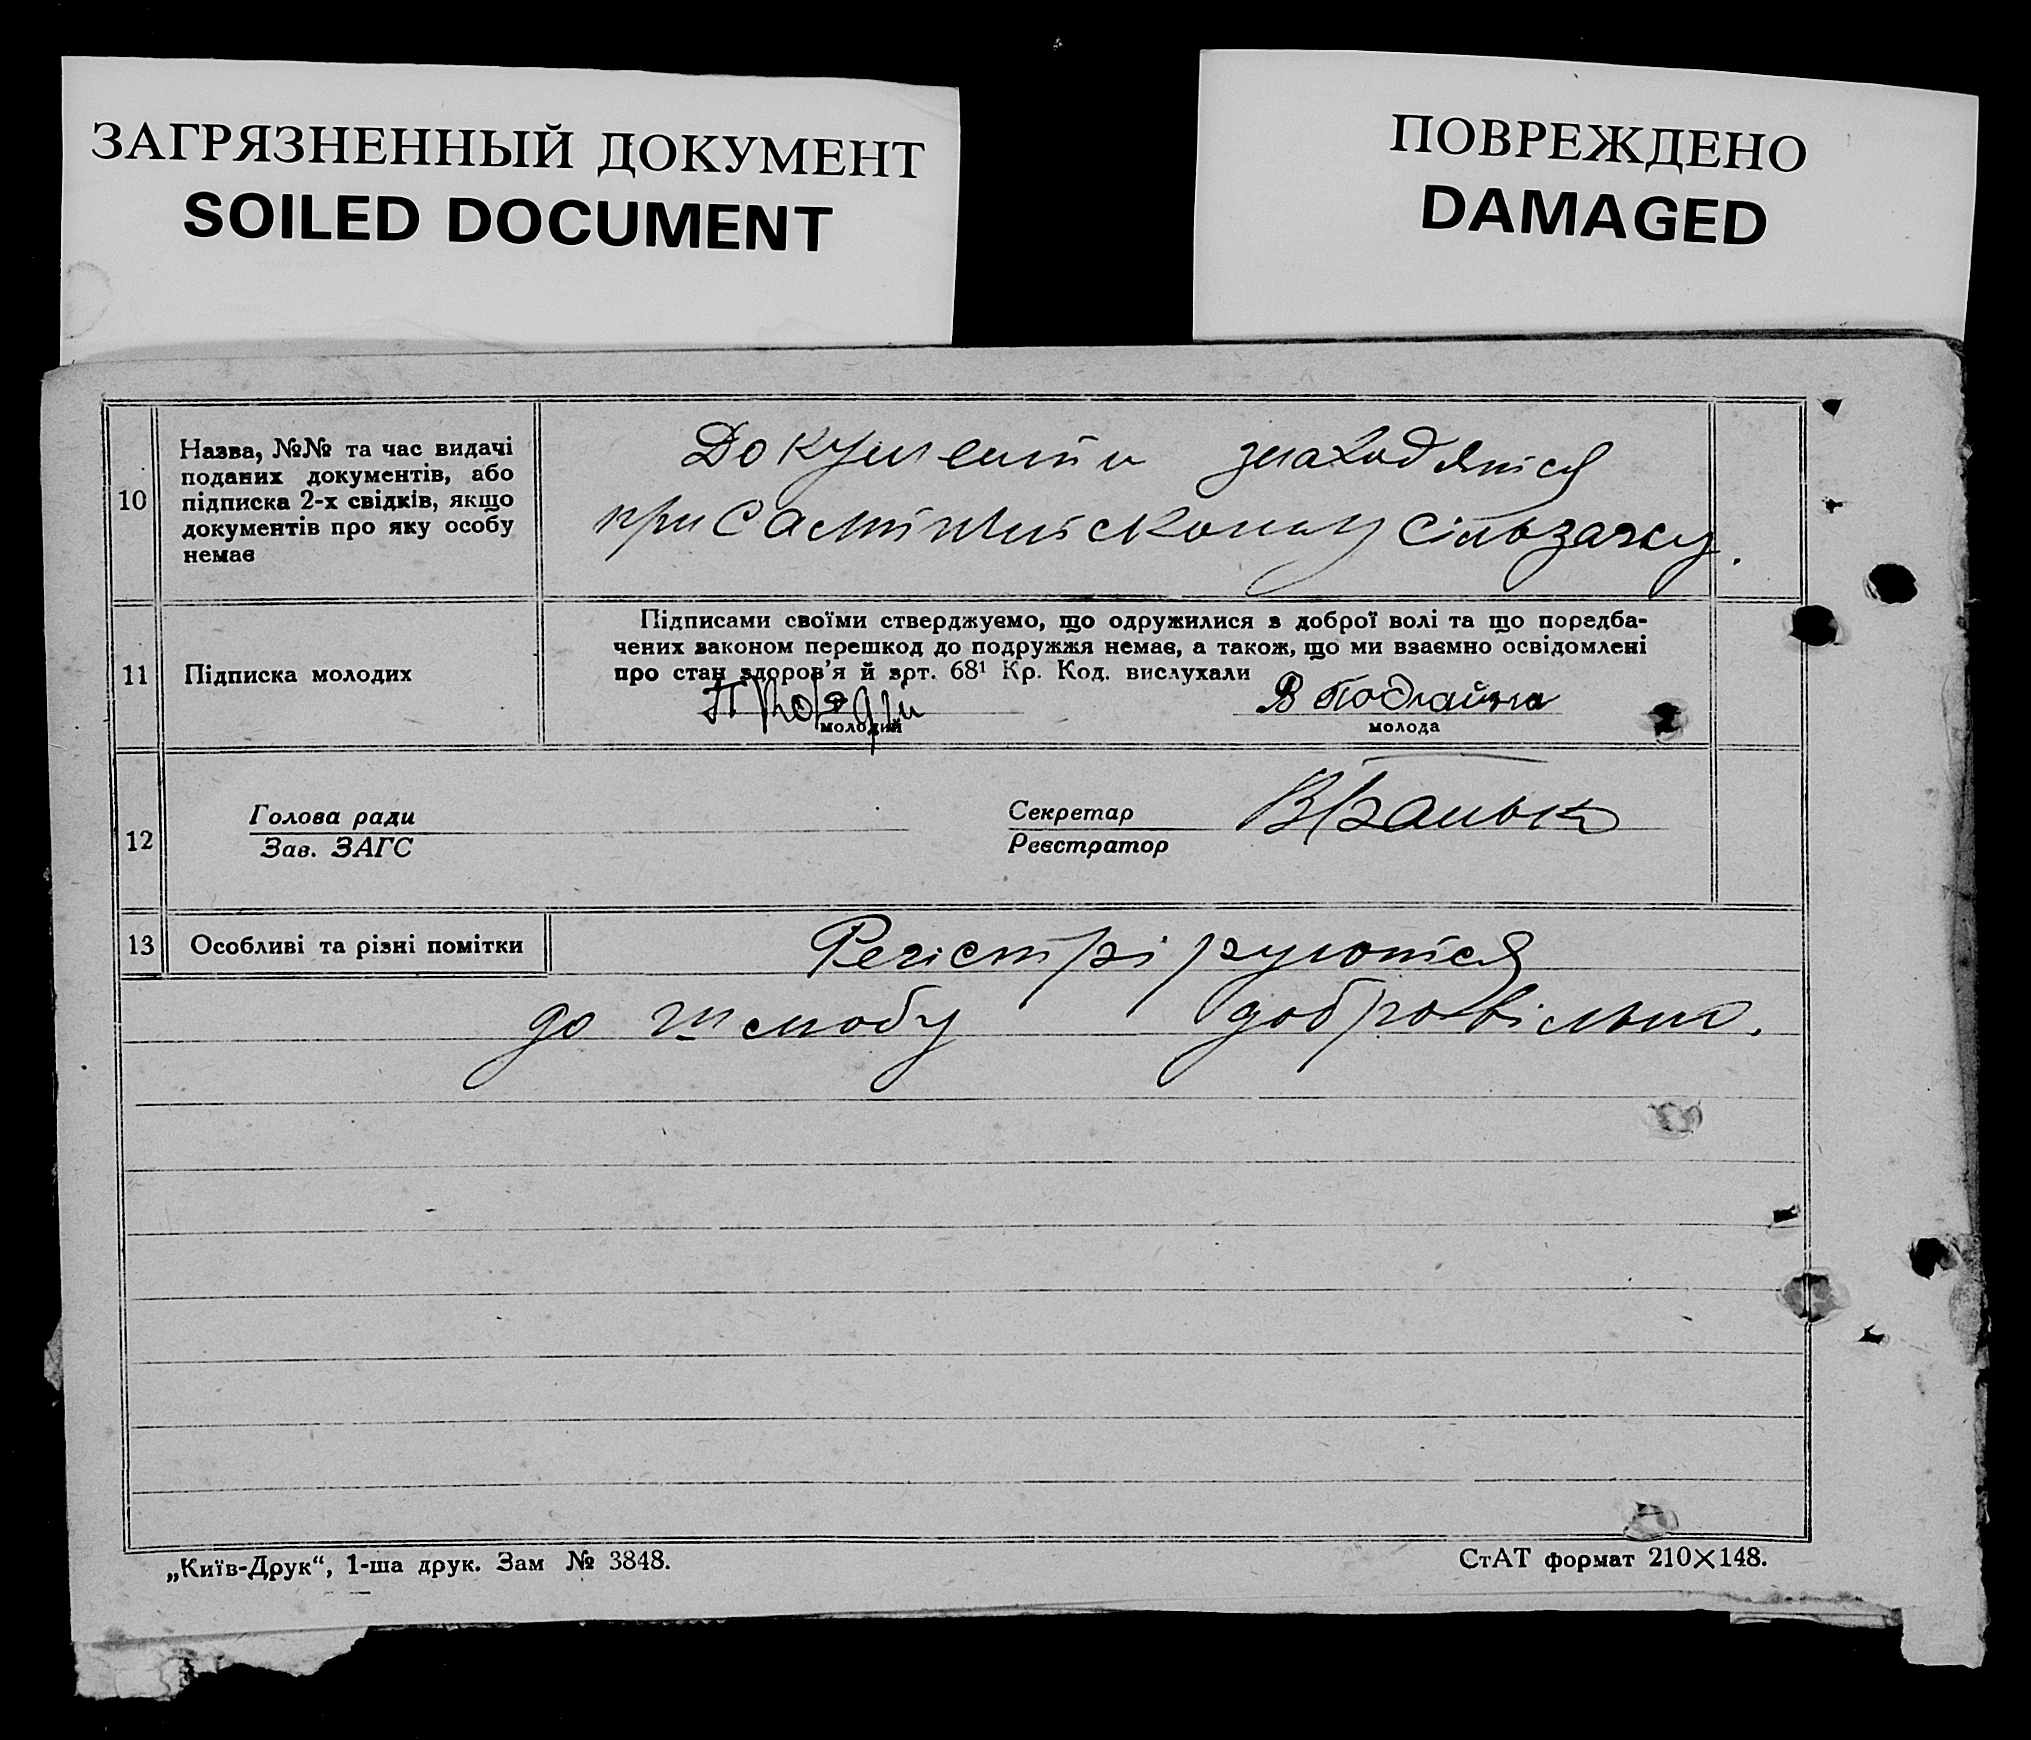 ЗАГРЯЗНЕННЫЙ ДОКУМЕНТ
SOILED DOCUMENT
ПОВРЕЖДЕНО
DAMAGED
10
Назва, №№ та час видачі
поданих документів, або
підписка 2-х свідків, якщо
документів про яку особу
немає
Документи знаходяться
при сільзагсу.
11
Підписка молодих
Підписами своїми стверджуємо, що одружилися з доброї волі та що поредба-
чених законом перешкод до подружжя немає, а також, що ми взаємно освідомлені
про стан здоров'я й арт. 68¹ Кр. Код. вислухали
молодий
молода
12
Голова ради
Зав. ЗАГС
Секретар
Реєстратор
13
Особливі та різні помітки
Регістріруются
до шлюбу добровільно.
„Київ-Друк“, 1-ша друк. Зам № 3848.
СтАТ формат 210×148.